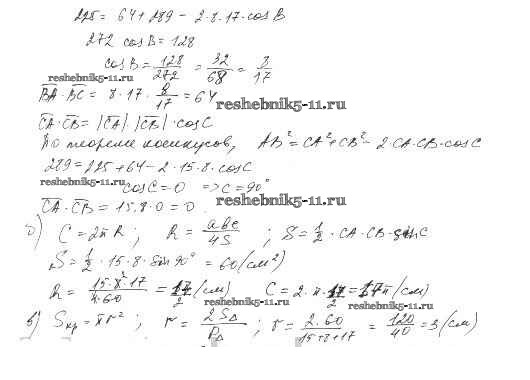 225 = 64 + 289 − 2·8·17·cos B
272 cos B = 128
cos B = 128/272 = 32/68 = 8/17
reshebnik5-11.ru
BA · BC = 8·17· 8/17 = 64
reshebnik5-11.ru
CA · CB = |CA| · |CB| · cos C
По теореме косинусов, AB² = CA² + CB² − 2·CA·CB·cos C
289 = 225 + 64 − 2·15·8·cos C
reshebnik5-11.ru
cos C = 0 => C = 90°
CA · CB = 15·8·0 = 0
reshebnik5-11.ru
б) C = 2πR ; R = abc/4S ; S = 1/2 · CA · CB · sin C
S = 1/2 · 15·8· sin 90° = 60 (см²)
R = 15·8·17/4·60 = 17/2 (см) C = 2·π·17/2 = 17π (см)
reshebnik5-11.ru
reshebnik5-11.ru
в) Sкр = πr² ; r = 2SΔ/PΔ ; r = 2·60/15+8+17 = 120/40 = 3 (см)